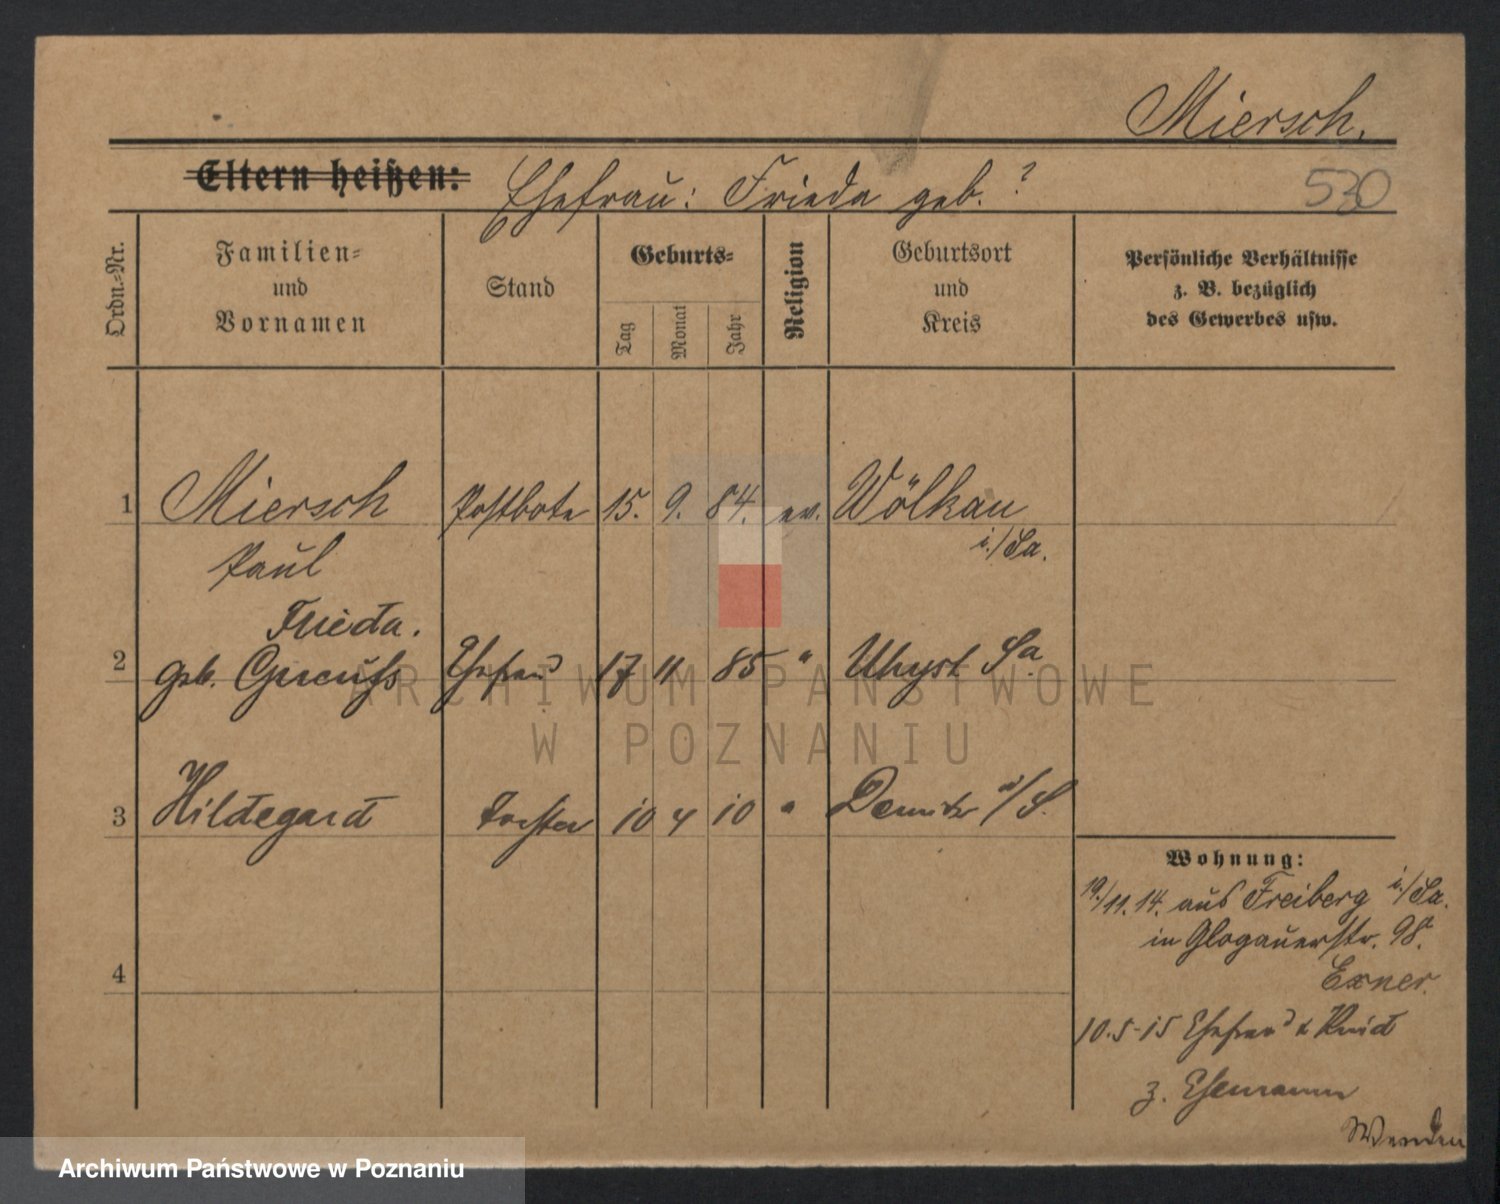 Miersch.
Eltern heißen: Ehefrau: Frieda geb. ?
530
Ordn.-Nr.
Familien-
und
Vornamen
Stand
Geburts-
Tag
Monat
Jahr
Religion
Geburtsort
und
Kreis
Persönliche Verhältnisse
z. B. bezüglich
des Gewerbes usw.
1 Miersch Postbote 15. 9. 84. ev. Wölkau
i./Sa.
Paul
Frieda.
2 geb. Ehefrau 17 11 85 " Uhyst Sa.
3 Hildegard Tochter 10 4 10 " Demitz /S.
4
Wohnung:
19./11. 14. aus Freiberg i./Sa.
in Glogauerstr. 98.
Exner.
10.5-15 Ehefrau & Kind
z. Ehemann
Wenden
ARCHIWUM PAŃSTWOWE
W POZNANIU
Archiwum Państwowe w Poznaniu